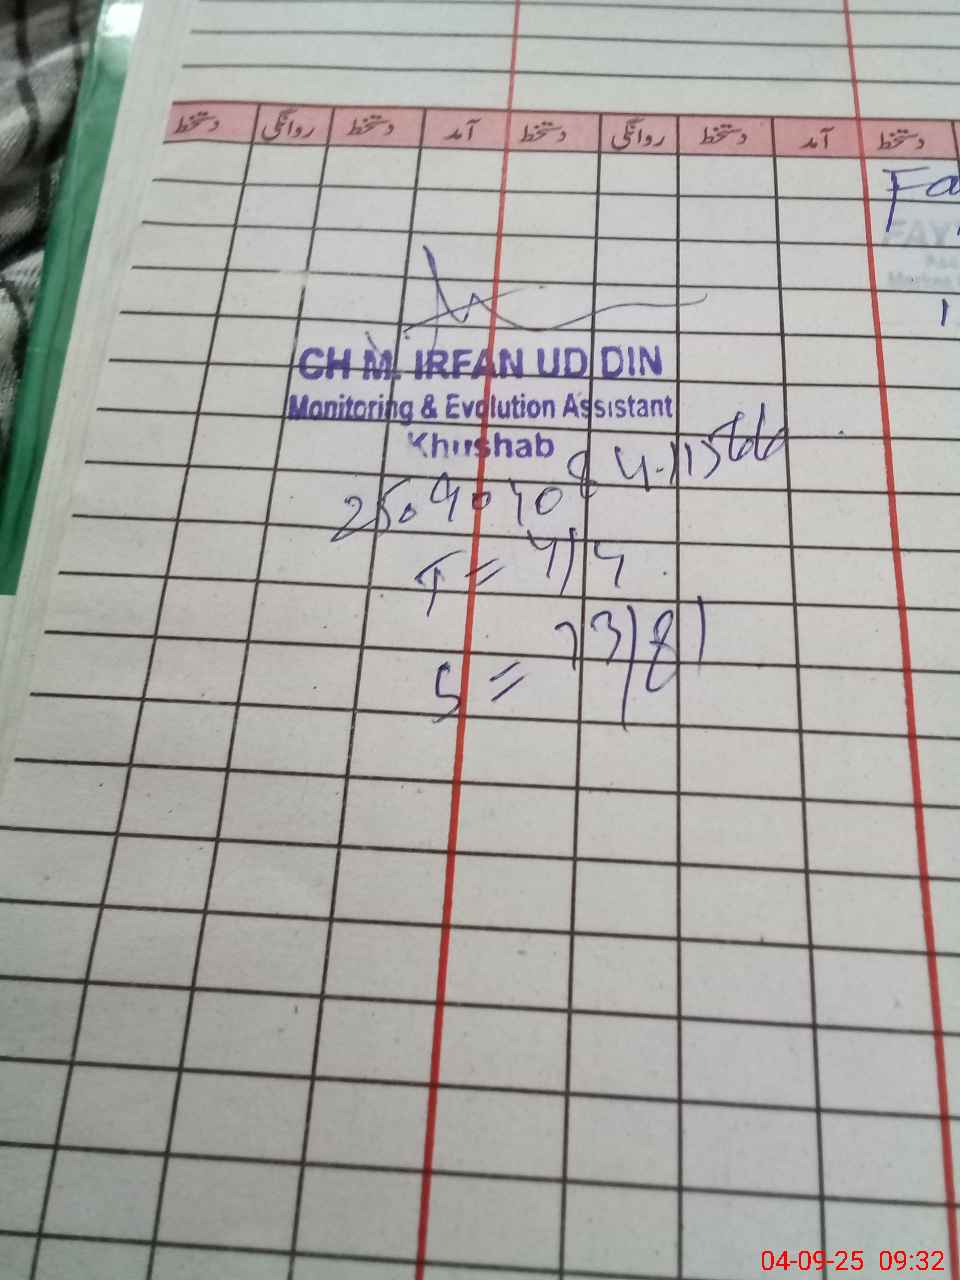 دستخط روانگی دستخط آمد دستخط روانگی دستخط آمد دستخط
Fa
FAY
CH M. IRFAN UD DIN
Monitoring & Evolution Assistant
Khushab
T = 4/4
S = 73/81
04-09-25 09:32